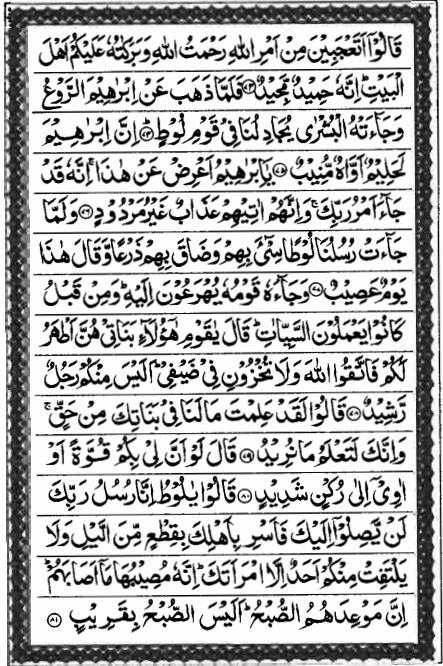 قَالُوۡۤا اَتَعۡجَبِيۡنَ مِنۡ اَمۡرِ اللّٰهِ رَحۡمَتُ اللّٰهِ وَبَرَكٰتُهٗ عَلَيۡكُمۡ اَهۡلَ
الۡبَيۡتِؕ اِنَّهٗ حَمِيۡدٌ مَّجِيۡدٌ ﴿۷۳﴾ فَلَمَّا ذَهَبَ عَنۡ اِبۡرٰهِيۡمَ الرَّوۡعُ
وَجَآءَتۡهُ الۡبُشۡرٰى يُجَادِلُنَا فِىۡ قَوۡمِ لُوۡطٍؕ ﴿۷۴﴾ اِنَّ اِبۡرٰهِيۡمَ
لَحَلِيۡمٌ اَوَّاهٌ مُّنِيۡبٌ ﴿۷۵﴾ يٰۤاِبۡرٰهِيۡمُ اَعۡرِضۡ عَنۡ هٰذَاۚ اِنَّهٗ قَدۡ
جَآءَ اَمۡرُ رَبِّكَۚ وَاِنَّهُمۡ اٰتِيۡهِمۡ عَذَابٌ غَيۡرُ مَرۡدُوۡدٍ ﴿۷۶﴾ وَلَمَّا
جَآءَتۡ رُسُلُنَا لُوۡطًا سِىۡٓءَ بِهِمۡ وَضَاقَ بِهِمۡ ذَرۡعًا وَّقَالَ هٰذَا
يَوۡمٌ عَصِيۡبٌ ﴿۷۷﴾ وَجَآءَهٗ قَوۡمُهٗ يُهۡرَعُوۡنَ اِلَيۡهِؕ وَمِنۡ قَبۡلُ
كَانُوۡا يَعۡمَلُوۡنَ السَّيِّاٰتِؕ قَالَ يٰقَوۡمِ هٰٓؤُلَآءِ بَنَاتِىۡ هُنَّ اَطۡهَرُ
لَكُمۡ فَاتَّقُوا اللّٰهَ وَلَا تُخۡزُوۡنِ فِىۡ ضَيۡفِىۡؕ اَلَيۡسَ مِنۡكُمۡ رَجُلٌ
رَّشِيۡدٌ ﴿۷۸﴾ قَالُوۡا لَقَدۡ عَلِمۡتَ مَا لَنَا فِىۡ بَنَاتِكَ مِنۡ حَقٍّۚ
وَاِنَّكَ لَتَعۡلَمُ مَا نُرِيۡدُ ﴿۷۹﴾ قَالَ لَوۡ اَنَّ لِىۡ بِكُمۡ قُوَّةً اَوۡ
اٰوِىۡۤ اِلٰى رُكۡنٍ شَدِيۡدٍ ﴿۸۰﴾ قَالُوۡا يٰلُوۡطُ اِنَّا رُسُلُ رَبِّكَ
لَنۡ يَّصِلُوۡۤا اِلَيۡكَ فَاَسۡرِ بِاَهۡلِكَ بِقِطۡعٍ مِّنَ الَّيۡلِ وَلَا
يَلۡتَفِتۡ مِنۡكُمۡ اَحَدٌ اِلَّا امۡرَاَتَكَؕ اِنَّهٗ مُصِيۡبُهَا مَاۤ اَصَابَهُمۡؕ
اِنَّ مَوۡعِدَهُمُ الصُّبۡحُؕ اَلَيۡسَ الصُّبۡحُ بِقَرِيۡبٍ ﴿۸۱﴾